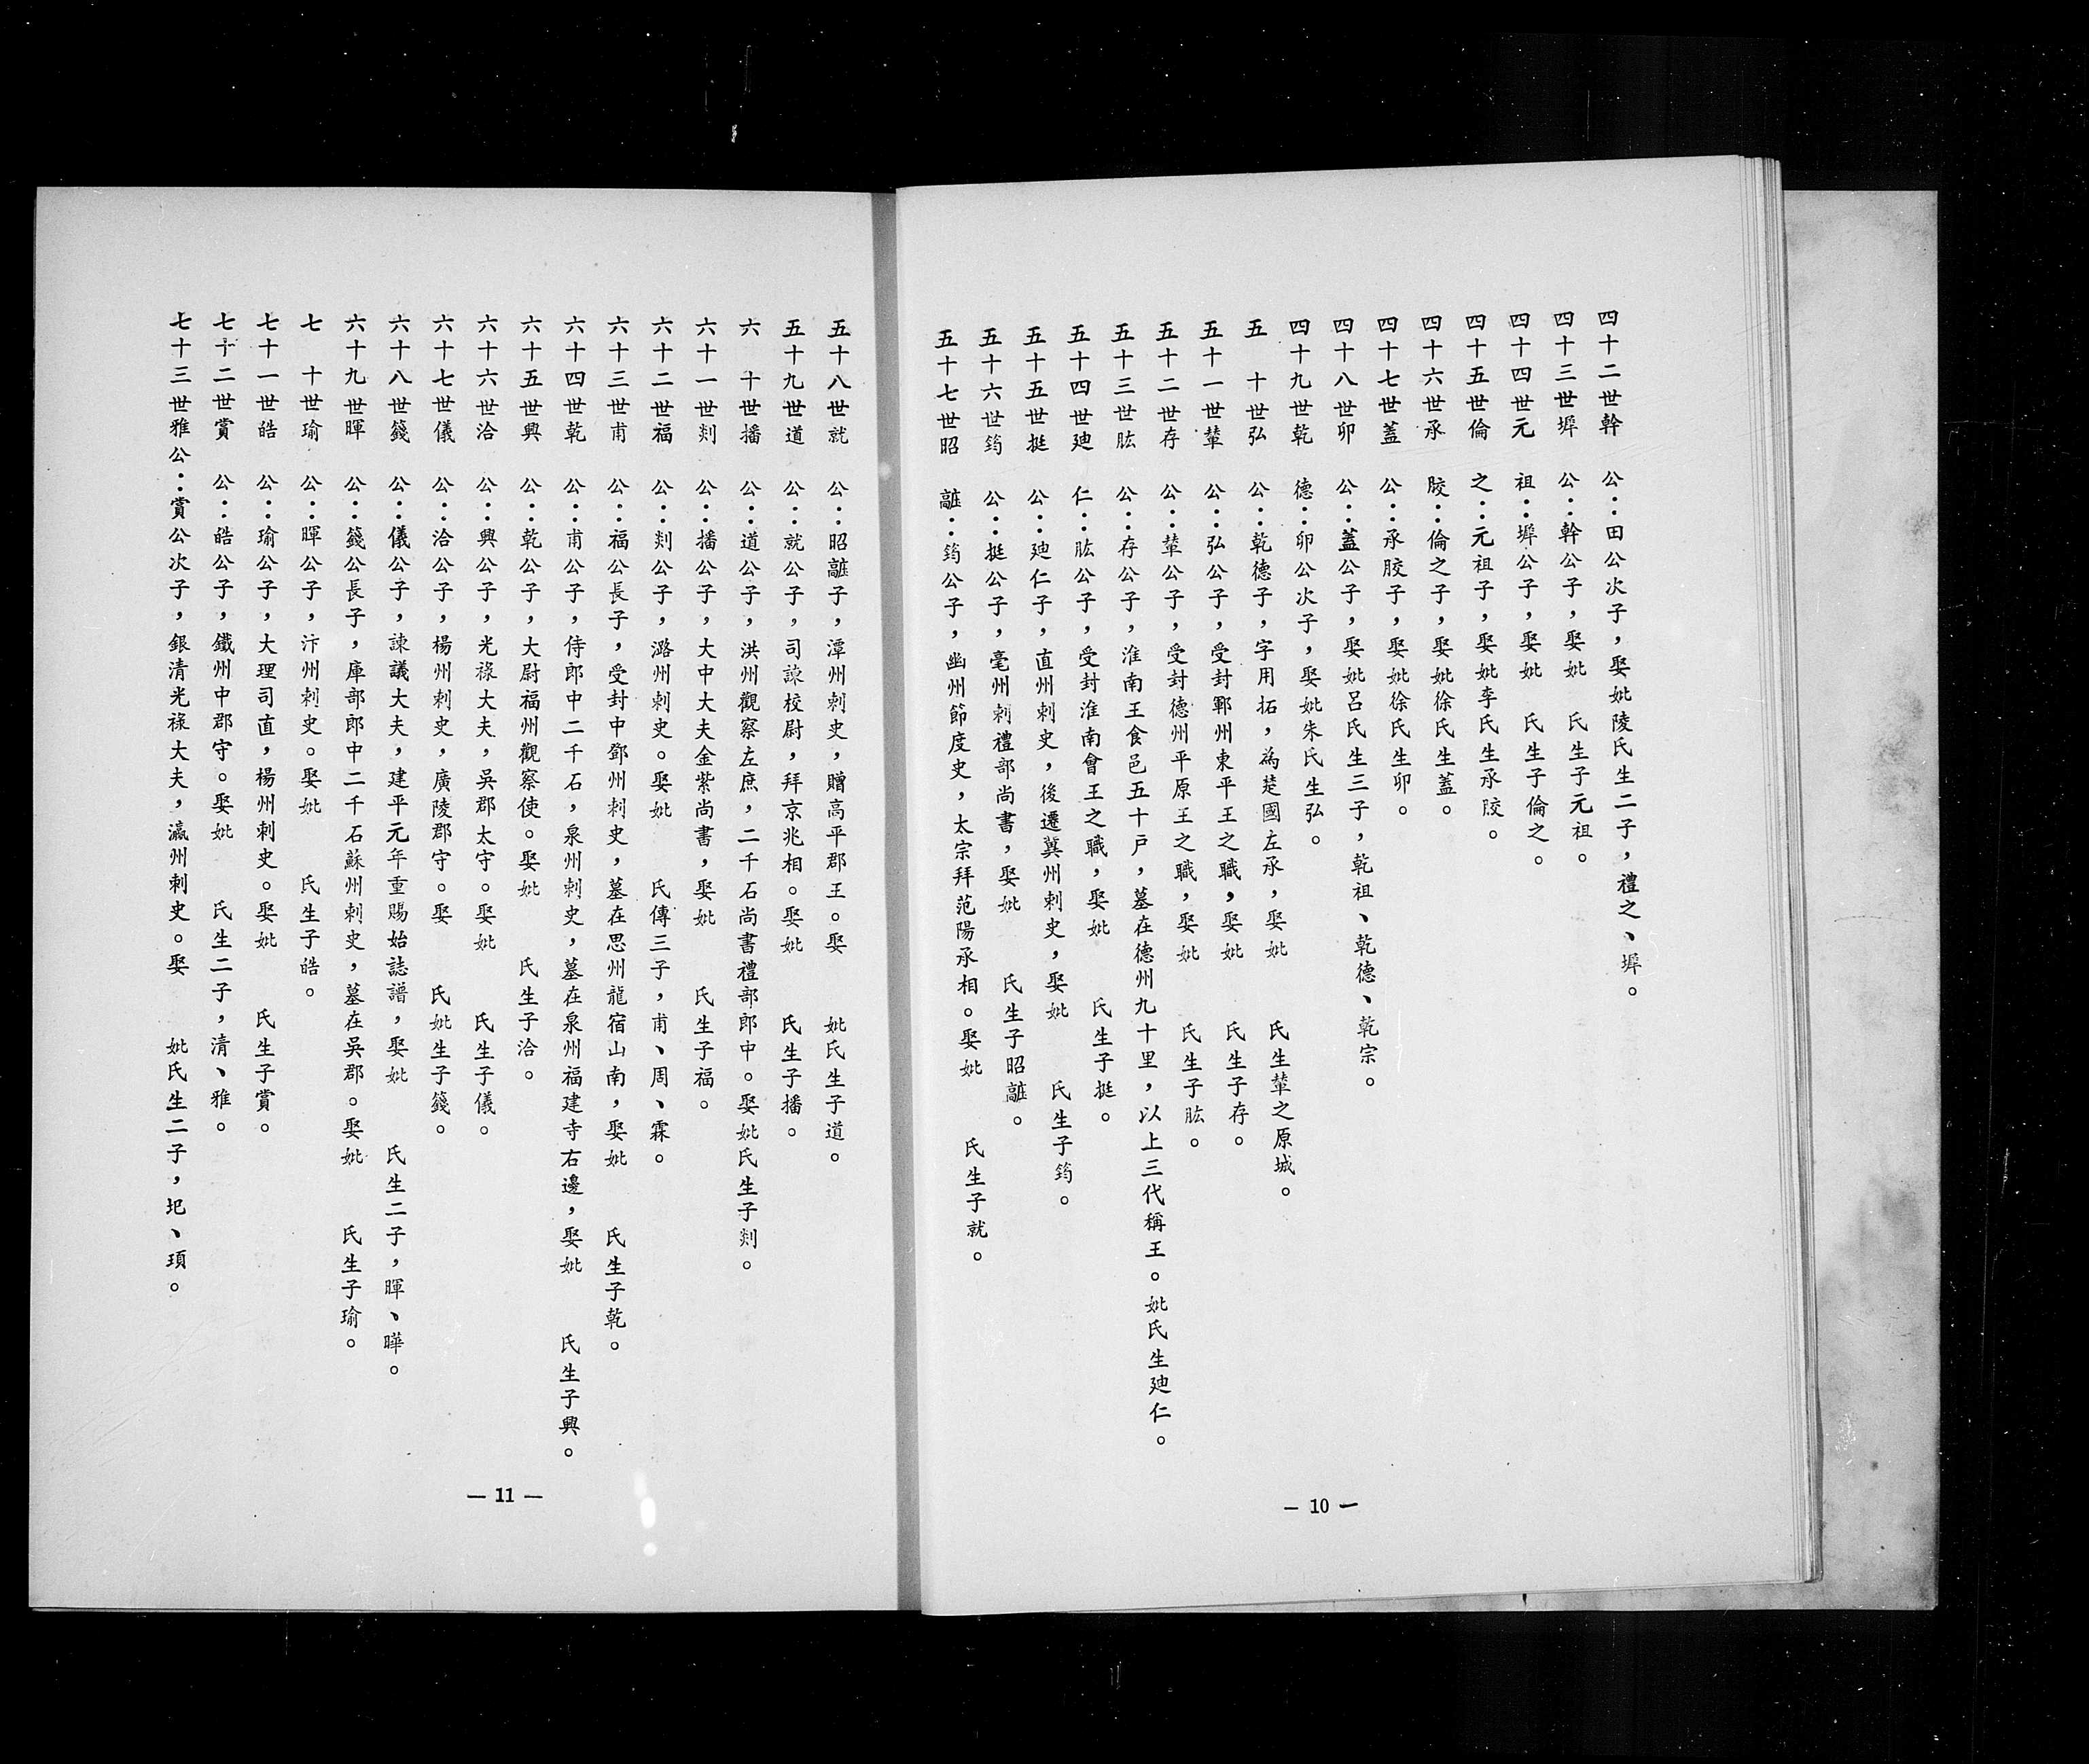 四十二世幹　公：田公次子，娶妣陵氏生二子，禮之、墀。
四十三世墀　公：幹公子，娶妣　氏生子元祖。
四十四世元　祖：墀公子，娶妣　氏生子倫之。
四十五世倫　之：元祖子，娶妣李氏生承胶。
四十六世承　胶：倫之子，娶妣徐氏生蓋。
四十七世蓋　公：承胶子，娶妣徐氏生卯。
四十八世卯　公：蓋公子，娶妣呂氏生三子，乾祖、乾德、乾宗。
四十九世乾　德：卯公次子，娶妣朱氏生弘。
五　十世弘　公：乾德子，字用拓，為楚國左承，娶妣　氏生輦之原城。
五十一世輦　公：弘公子，受封鄆州東平王之職，娶妣　氏生子存。
五十二世存　公：輦公子，受封德州平原王之職，娶妣　氏生子肱。
五十三世肱　公：存公子，淮南王食邑五十戶，墓在德州九十里，以上三代稱王。妣氏生廸仁。
五十四世廸　仁：肱公子，受封淮南會王之職，娶妣　氏生子挺。
五十五世挺　公：廸仁子，直州刺史，後遷冀州刺史，娶妣　氏生子筠。
五十六世筠　公：挺公子，亳州刺禮部尚書，娶妣　氏生子昭。
五十七世昭　：筠公子，幽州節度史，太宗拜范陽承相。娶妣　氏生子就。
— 10 —
五十八世就　公：昭子，潭州刺史，贈高平郡王。娶　妣氏生子道。
五十九世道　公：就公子，司諫校尉，拜京兆相。娶妣　氏生子播。
六　十世播　公：道公子，洪州觀察左庶，二千石尚書禮部郎中。娶妣氏生子剡。
六十一世剡　公：播公子，大中大夫金紫尚書，娶妣　氏生子福。
六十二世福　公：剡公子，潞州刺史。娶妣　氏傳三子，甫、周、霖。
六十三世甫　公：福公長子，受封中鄧州刺史，墓在思州龍宿山南，娶妣　氏生子乾。
六十四世乾　公：甫公子，侍郎中二千石，泉州刺史，墓在泉州福建寺右邊，娶妣　氏生子興。
六十五世興　公：乾公子，大尉福州觀察使。娶妣　氏生子洽。
六十六世洽　公：興公子，光祿大夫，吳郡太守。娶妣　氏生子儀。
六十七世儀　公：洽公子，楊州刺史，廣陵郡守。娶　氏妣生子籛。
六十八世籛　公：儀公子，諫議大夫，建平元年重賜始誌譜，娶妣　氏生二子，暉、曄。
六十九世暉　公：籛公長子，庫部郎中二千石蘇州刺史，墓在吳郡。娶妣　氏生子瑜。
七　十世瑜　公：暉公子，汴州刺史。娶妣　氏生子皓。
七十一世皓　公：瑜公子，大理司直，楊州刺史。娶妣　氏生子賞。
七十二世賞　公：皓公子，鐵州中郡守。娶妣　氏生二子，清、雅。
七十三世雅公：賞公次子，銀清光祿大夫，瀛州刺史。娶　妣氏生二子，圯、頊。
— 11 —